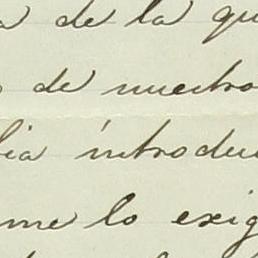 a de la qu
de nuestro
lia introdu
me lo exig